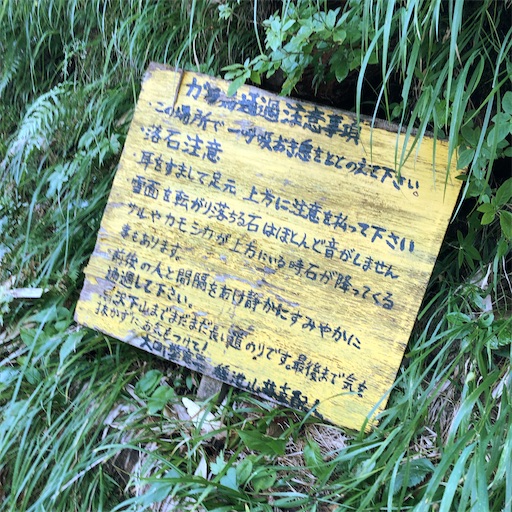 ガレ場通過注意事項
・この場所で一呼吸おき息をととのえて下さい。
・落石注意
・耳をすまして足元、上方に注意を払って下さい
雪面を転がり落ちる石はほとんど音がしません
サルやカモシカが上方にいる時石が降ってくる
事もあります。
前後の人と間隔をあけ静かにすみやかに
通過して下さい。
下山までまだまだ長い道のりです。最後まで気を
抜かずにお気をつけて!